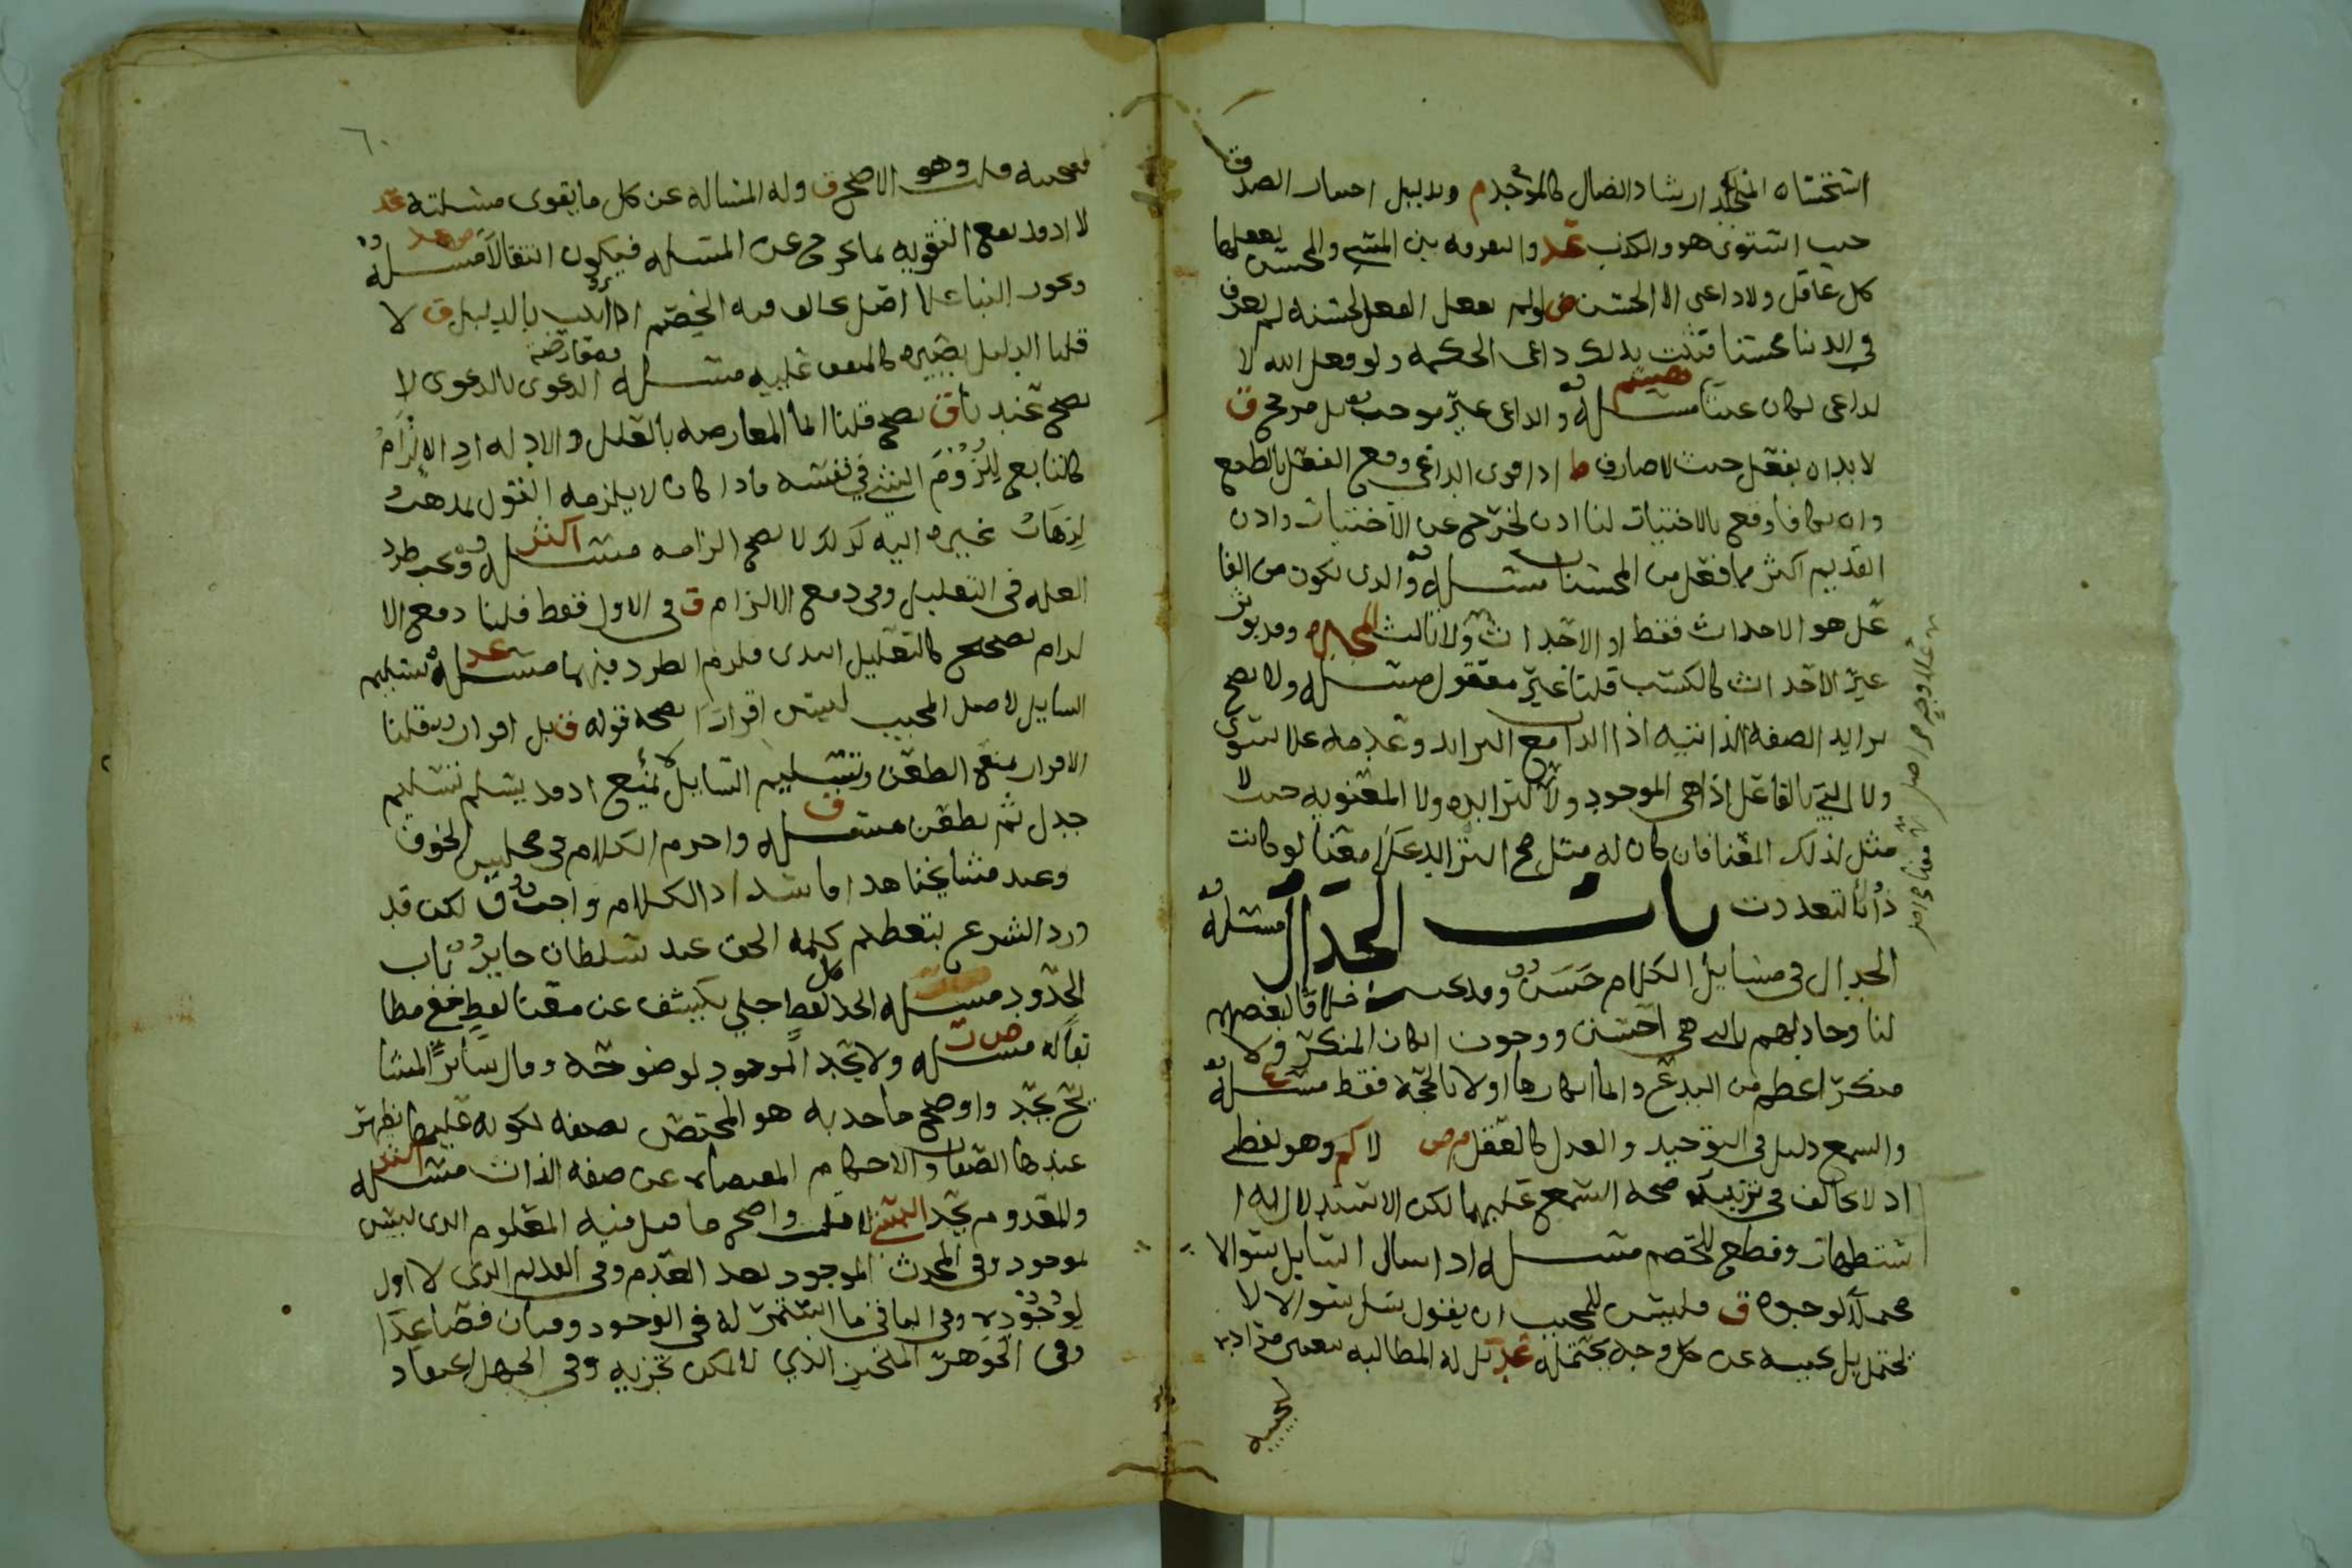 استحسناه الملحد ارشاد الضال كالموحد م وبدليل احسار الصدق
حيث استوى هو والكذب عد والتفرقه بين المسي والمحسن يفعلها
كل عاقل ولا داعي الا الحسن ض ولو لم يفعل الفعل لحسنه لم يعرف
في الدنيا محسنا فثبت بذلك داعي الحكمه ولو فعل الله لا
لداعي لكان عبثا مسئلة والداعي غير موجب بل مرجح ق
لا بد ان يفعل حيث لا صارف ط اذا قوى الداعي وقع الفعل بالطبع
وان تكافا وقع بالاختيار لنا اذن لخرج عن الاختيار واذن
القديم اكثر مما فعل من المحسنات مسئلة والذي يكون من الفا
عل هو الاحداث فقط او الاحداث ولا ثالث المجبره وقد يوثر
غير الاحداث كالكسب قلنا غير معقول مسئلة ولا يصح
تزايد الصفه الذاتيه اذ الذات مع التزايد وعدمه على سوى
ولا التي بالفاعل اذ هي الوجود ولا تزايد ولا المعنويه حيث لا
مثل لذلك المعنا فان كان له مثل صح التزايد معنا لو كانت
ذاتا لتعددت باب الجدال مسئلة
الجدال في مسايل الكلام حسن وقد خلافا لبعضهم
لنا وجادلهم بالتي هي احسن ووجوب انكار المنكر ولا
منكر اعظم من البدع وانما انكارها اولا بالحجة فقط مسئلة
والسمع دليل في التوحيد والعدل كالعقل م ض لا كم وهو لفظي
اذ لا يخالف في ترتيب صحه السمع عليهما لكن الاستدلال له ا
ستظهار وقطع للخصم مسئلة اذا سال السايل سوالا
محتملا لوجوه ق فليس للمجيب ان يقول سل سوالا لا
يحتمل بل يجيبه عن كل وجه يحتمله عد بل له المطالبه بتعيين مراده
ليجيبه
٦٠
فيجيبه قلت وهو الاصح ق وله المساله عن كل ما يقوى مسئلته عد
لا اذ قد يقع التقويه بما يخرج عن المسئله فيكون انتقالا مسئلة
ويجوز البنا على اصل يخالف فيه الخصم اذا اثبت بالدليل ق لا
قلنا الدليل يصيره كالمتفق عليه مسئلة ومعارضة الدعوى بالدعوى لا
يصح عند نا ق يصح قلنا انما المعارضه بالعلل والادله اذ الالزام
كالتابع للزوم الشي في نفسه فاذا كان لا يلزمه القول بمذهب
لذهاب غيره اليه كذلك لا يصح الزامه مسئلة اكثر ويجب طرد
العله في التعليل وفي دفع الالزام ق في الاول فقط قلنا دفع الا
لزام تصحيح كالتعليل ابتدى فلزم الطرد فيهما مسئلة عد تسليم
السايل لاصل المجيب ليس اقرارا بصحه قوله ق بل اقرار قلنا
الاقرار يمنع الطعن وتسليم السايل لا يمنع اذ قد يسلم تسليم
جدل ثم يطعن مسئلة ق واحرم الكلام في مجلس الخوف
وعند مشايخنا هذا ما الكلام واجب ق لكن قد
ورد الشرع بتعظيم كلمة الحق عند سلطان جاير باب
الحدود مسئلة الحد كل لفظ جلي يكشف عن معنا لفظ خفي مطا
بقا له مسئلة ض ت ولا يحد الموجود لوضوحه وقال ساير المشا
يخ يحد واوضح ما حد به هو المختص بصفه لكونه عليها تظهر
عندها الصفات والاحكام عن صفه الذات مسئلة اكثر
والمعدوم يحد البستي لا قلت واصح ما قيل فيه المعلوم الذي ليس
بموجود وفي المحدث الموجود بعد العدم وفي القديم الذي لا اول
لوجوده وفي الباقي ما استمر له في الوجود وقتان فصاعدا
وفي الجوهر المتحيز الذي لا يمكن تجزيه وفي الجهل اعتقاد